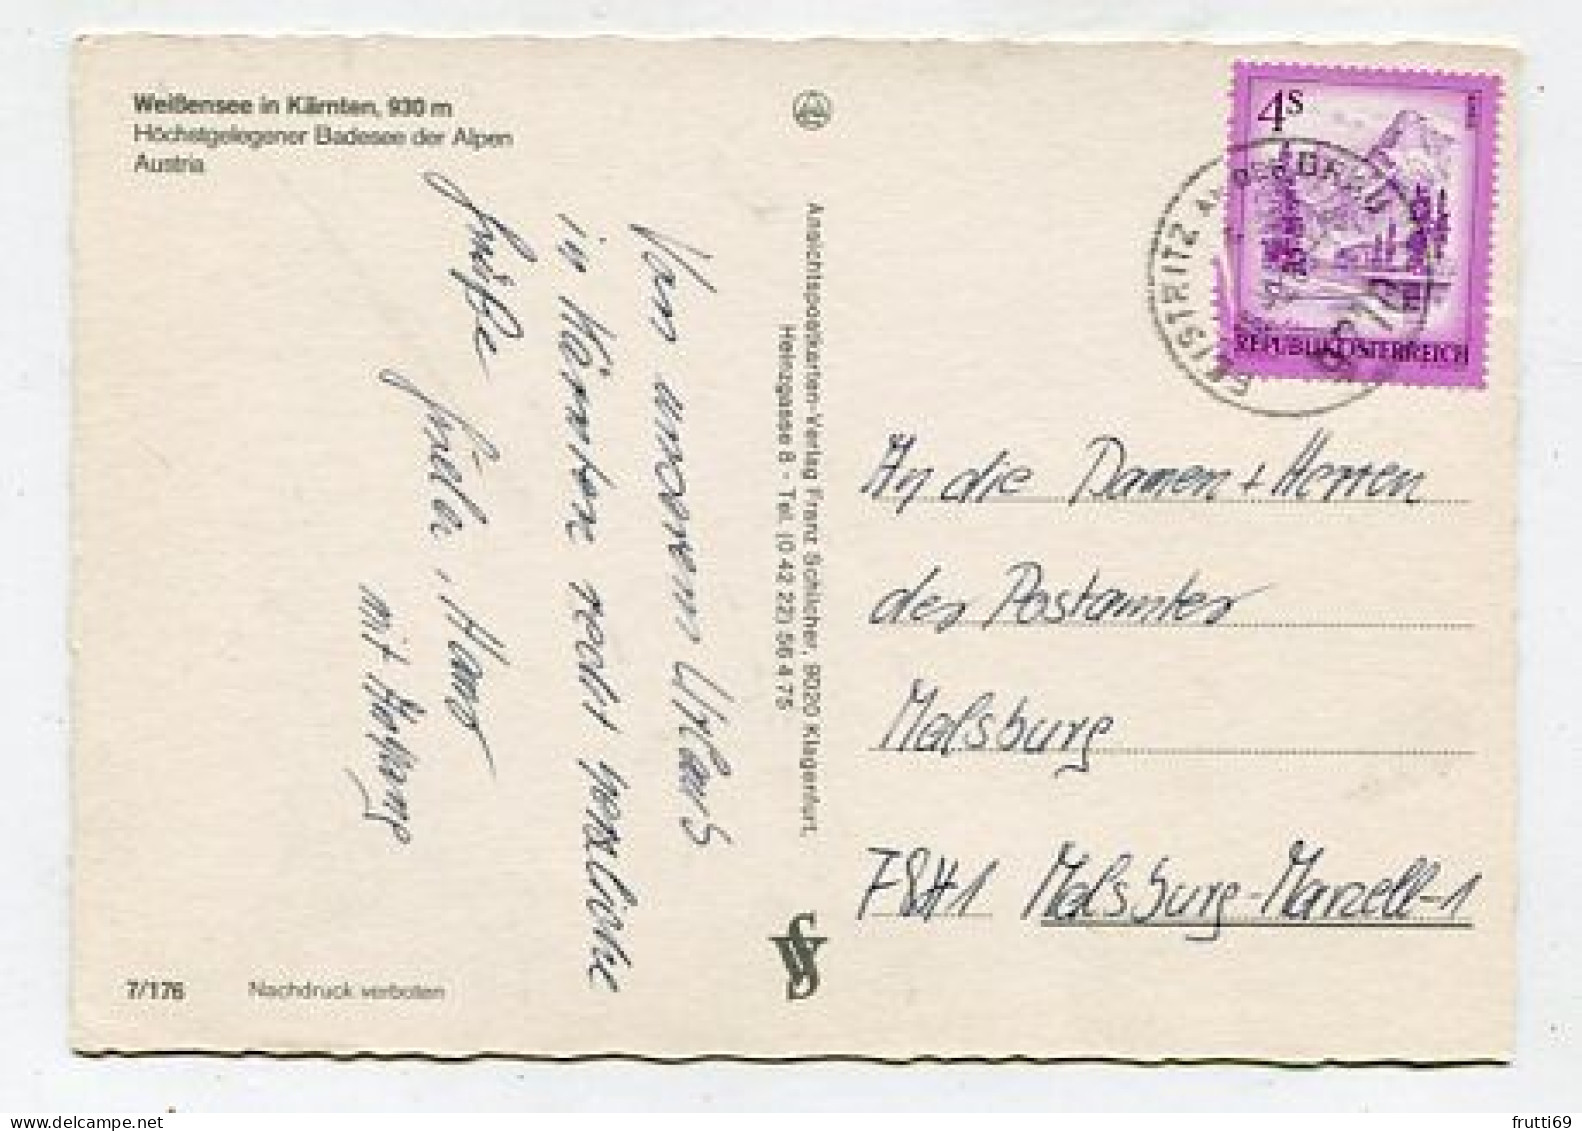 Weißensee in Kärnten, 930 m
Höchstgelegener Badesee der Alpen
Austria
Von unserem Urlaub
in Kärnten recht herzliche
Grüße
Gisela, Hans
mit
7/176
Nachdruck verboten
Ansichtspostkarten-Verlag Franz Schilcher, 9020 Klagenfurt,
Heinzgasse 8 - Tel. (0 42 22) 56 4 75
4S
REPUBLIK ÖSTERREICH
FEISTRITZ AN DER DRAU
An die Damen + Herren
des Postamtes
Malsburg
7841 Malsburg-Marzell-1
frutti69